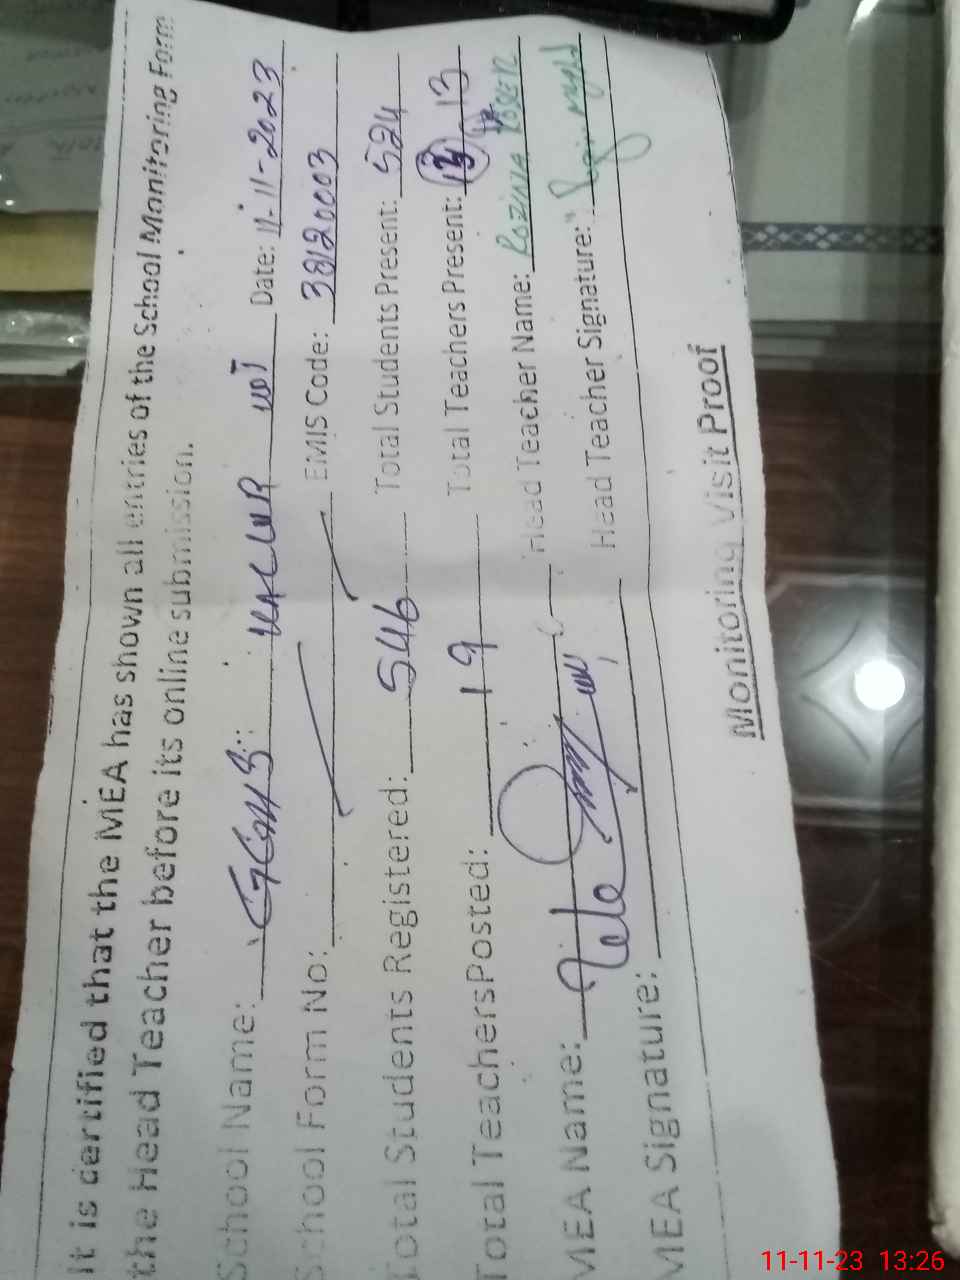 It is certified that the MEA has shown all entries of the School Monitoring Form
the Head Teacher before its online submission.
School Name: GGHS Date: 11-11-2023
School Form No: EMIS Code: 38120003
Total Students Registered: 546 Total Students Present: 524
Total Teachers Posted: 19 Total Teachers Present: 13
MEA Name: Head Teacher Name: Rozina
MEA Signature: Head Teacher Signature:
Monitoring Visit Proof
11-11-23 13:26